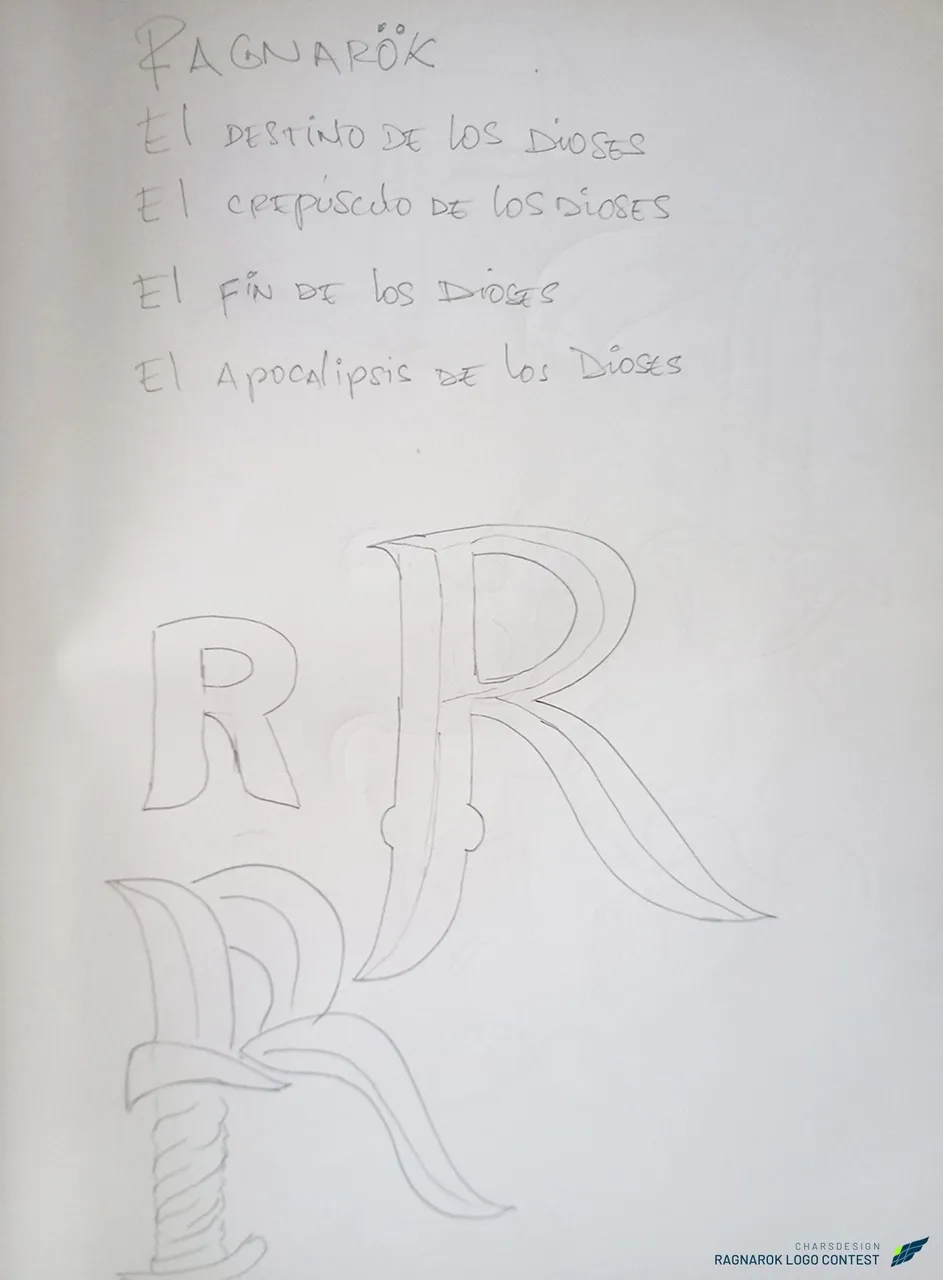 RAGNARÖK
El DESTINO DE LOS DIOSES
El CREPÚSCULO DE LOS DIOSES
El FIN DE los DIOSES
El Apocalipsis DE los DIOSES
R R
R
CHARSDESIGN
RAGNAROK LOGO CONTEST